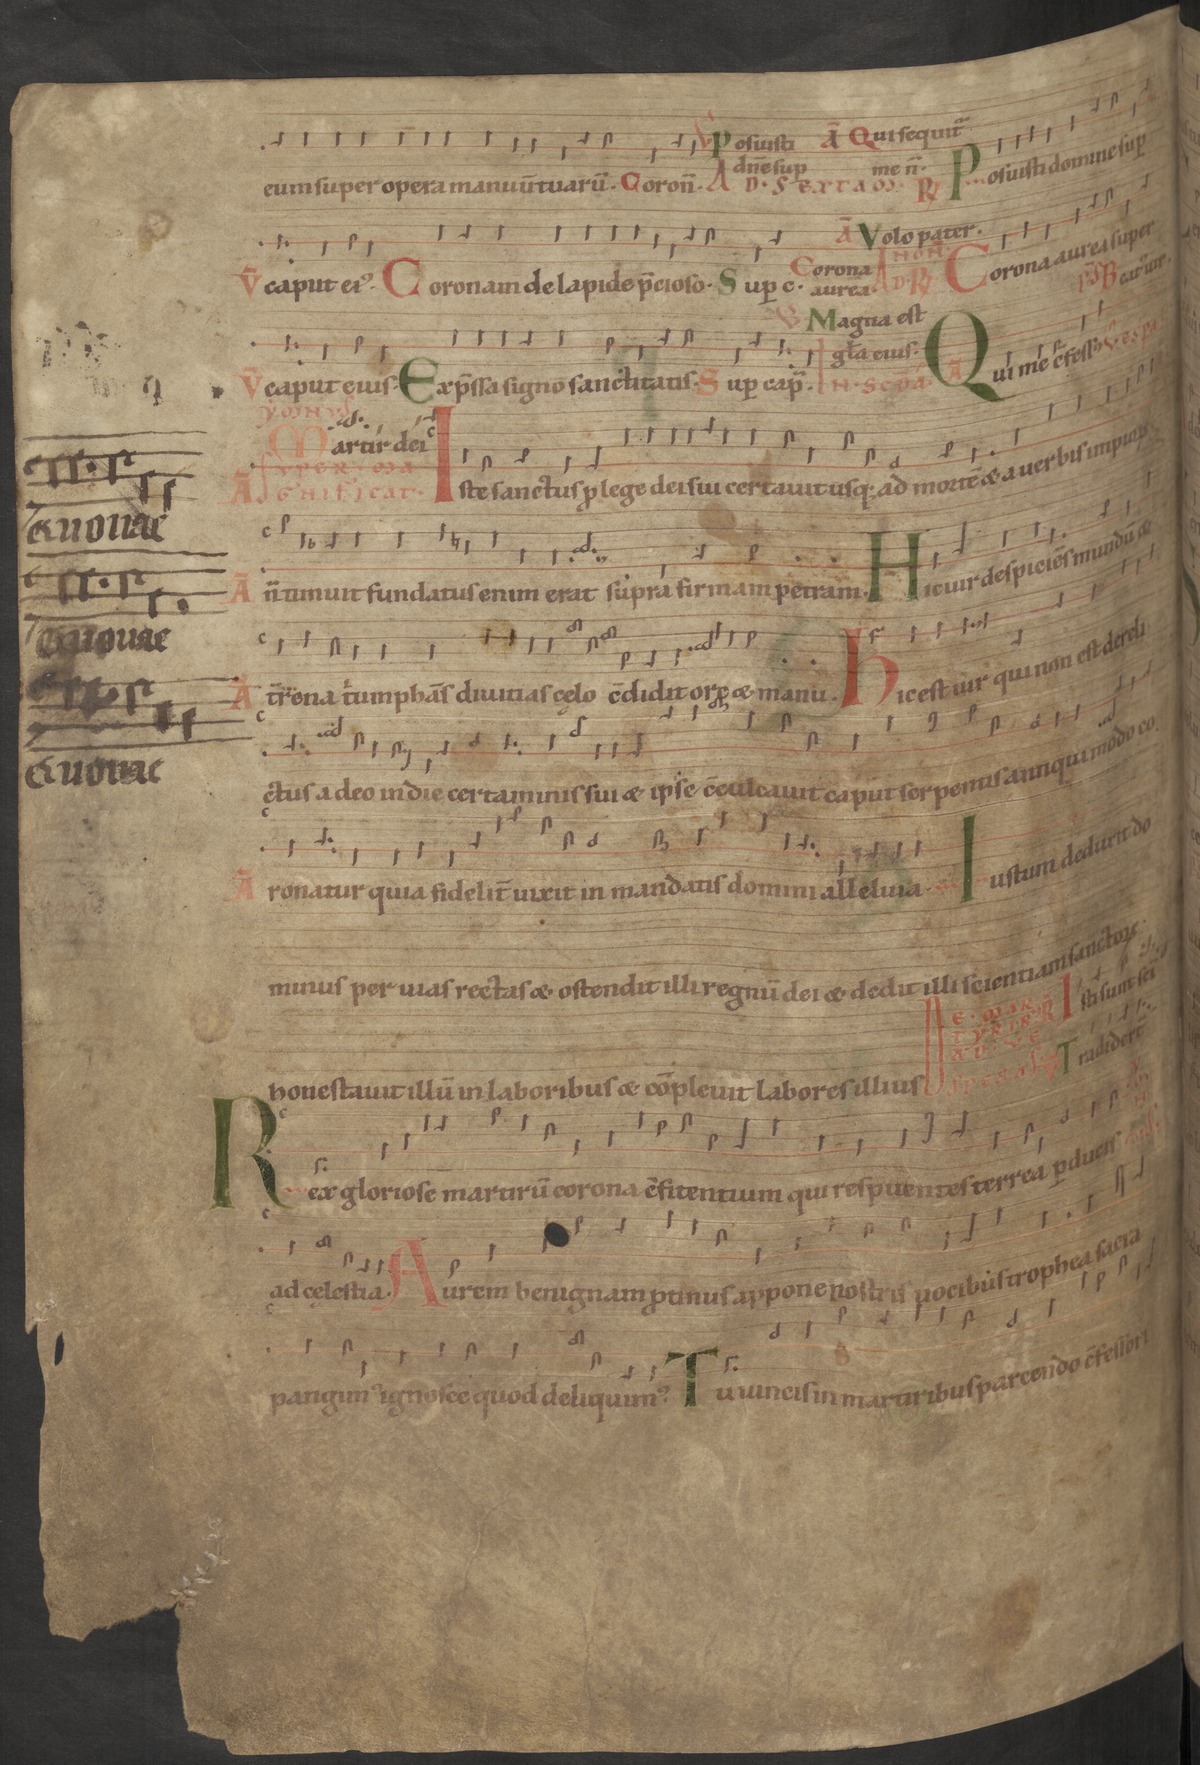 V Posuisti Ā Qui sequit᷑
dn̄e sup me n̄.
eum super opera manuū tuarū. Coron̄. AD. SEXTAM. R̷ Posuisti domine sup̄
Ā Volo pater.
V̄ caput ei⁹. Coronam de lapide p̄cioso. Sup c. Corona aurea. AD NON. R̷ Corona aurea super
V̷ Magna est
gl̄a eius. p̄s Beat⁹ uir.
V̄ caput eius. Exp̄ssa signo sanctitatis. Sup cap̄. IN. SCD̄A. Ā Qui me c̄fess⁹ VESPA
YMNVS
Martir dei
SVPER. MA
GNIFICAT.
Ā Iste sanctus p lege dei sui certauit usq; ad mortē & a uerbis impiop̄
Ā n̄ timuit fundatus enim erat supra firmam petram. Hic uir despiciēs mundū &
Ā t̄rena t̄umphās diuitias celo c̄didit ore & manu. Hic est uir qui non est dereli
ctus a deo in die certaminis sui & ipse c̄culcauit caput serpentis antiqui modo co
Ā ronatur quia fidelit̄ uixit in mandatis domini alleluia. Iustum deduxit do
minus per uias rectas & ostendit illi regnū dei & dedit illi scientiam sanctor̄
DE. MAR
TYRIB Ā Isti sunt sc̄i
AD. VE
honestauit illū in laboribus & cōpleuit labores illius SPERAS. V̷ Tradider̄t
Rex gloriose martirū corona c̄fitentium qui respuentes terrea p̄ducis
ad celestia. Aurem benignam p̄tinus appone nostris uocibus trophea sacra
pangim⁹ ignosce quod deliquim⁹. Tu uincis in martiribus parcendo c̄fessori
Euouae
Euouae
Euouae